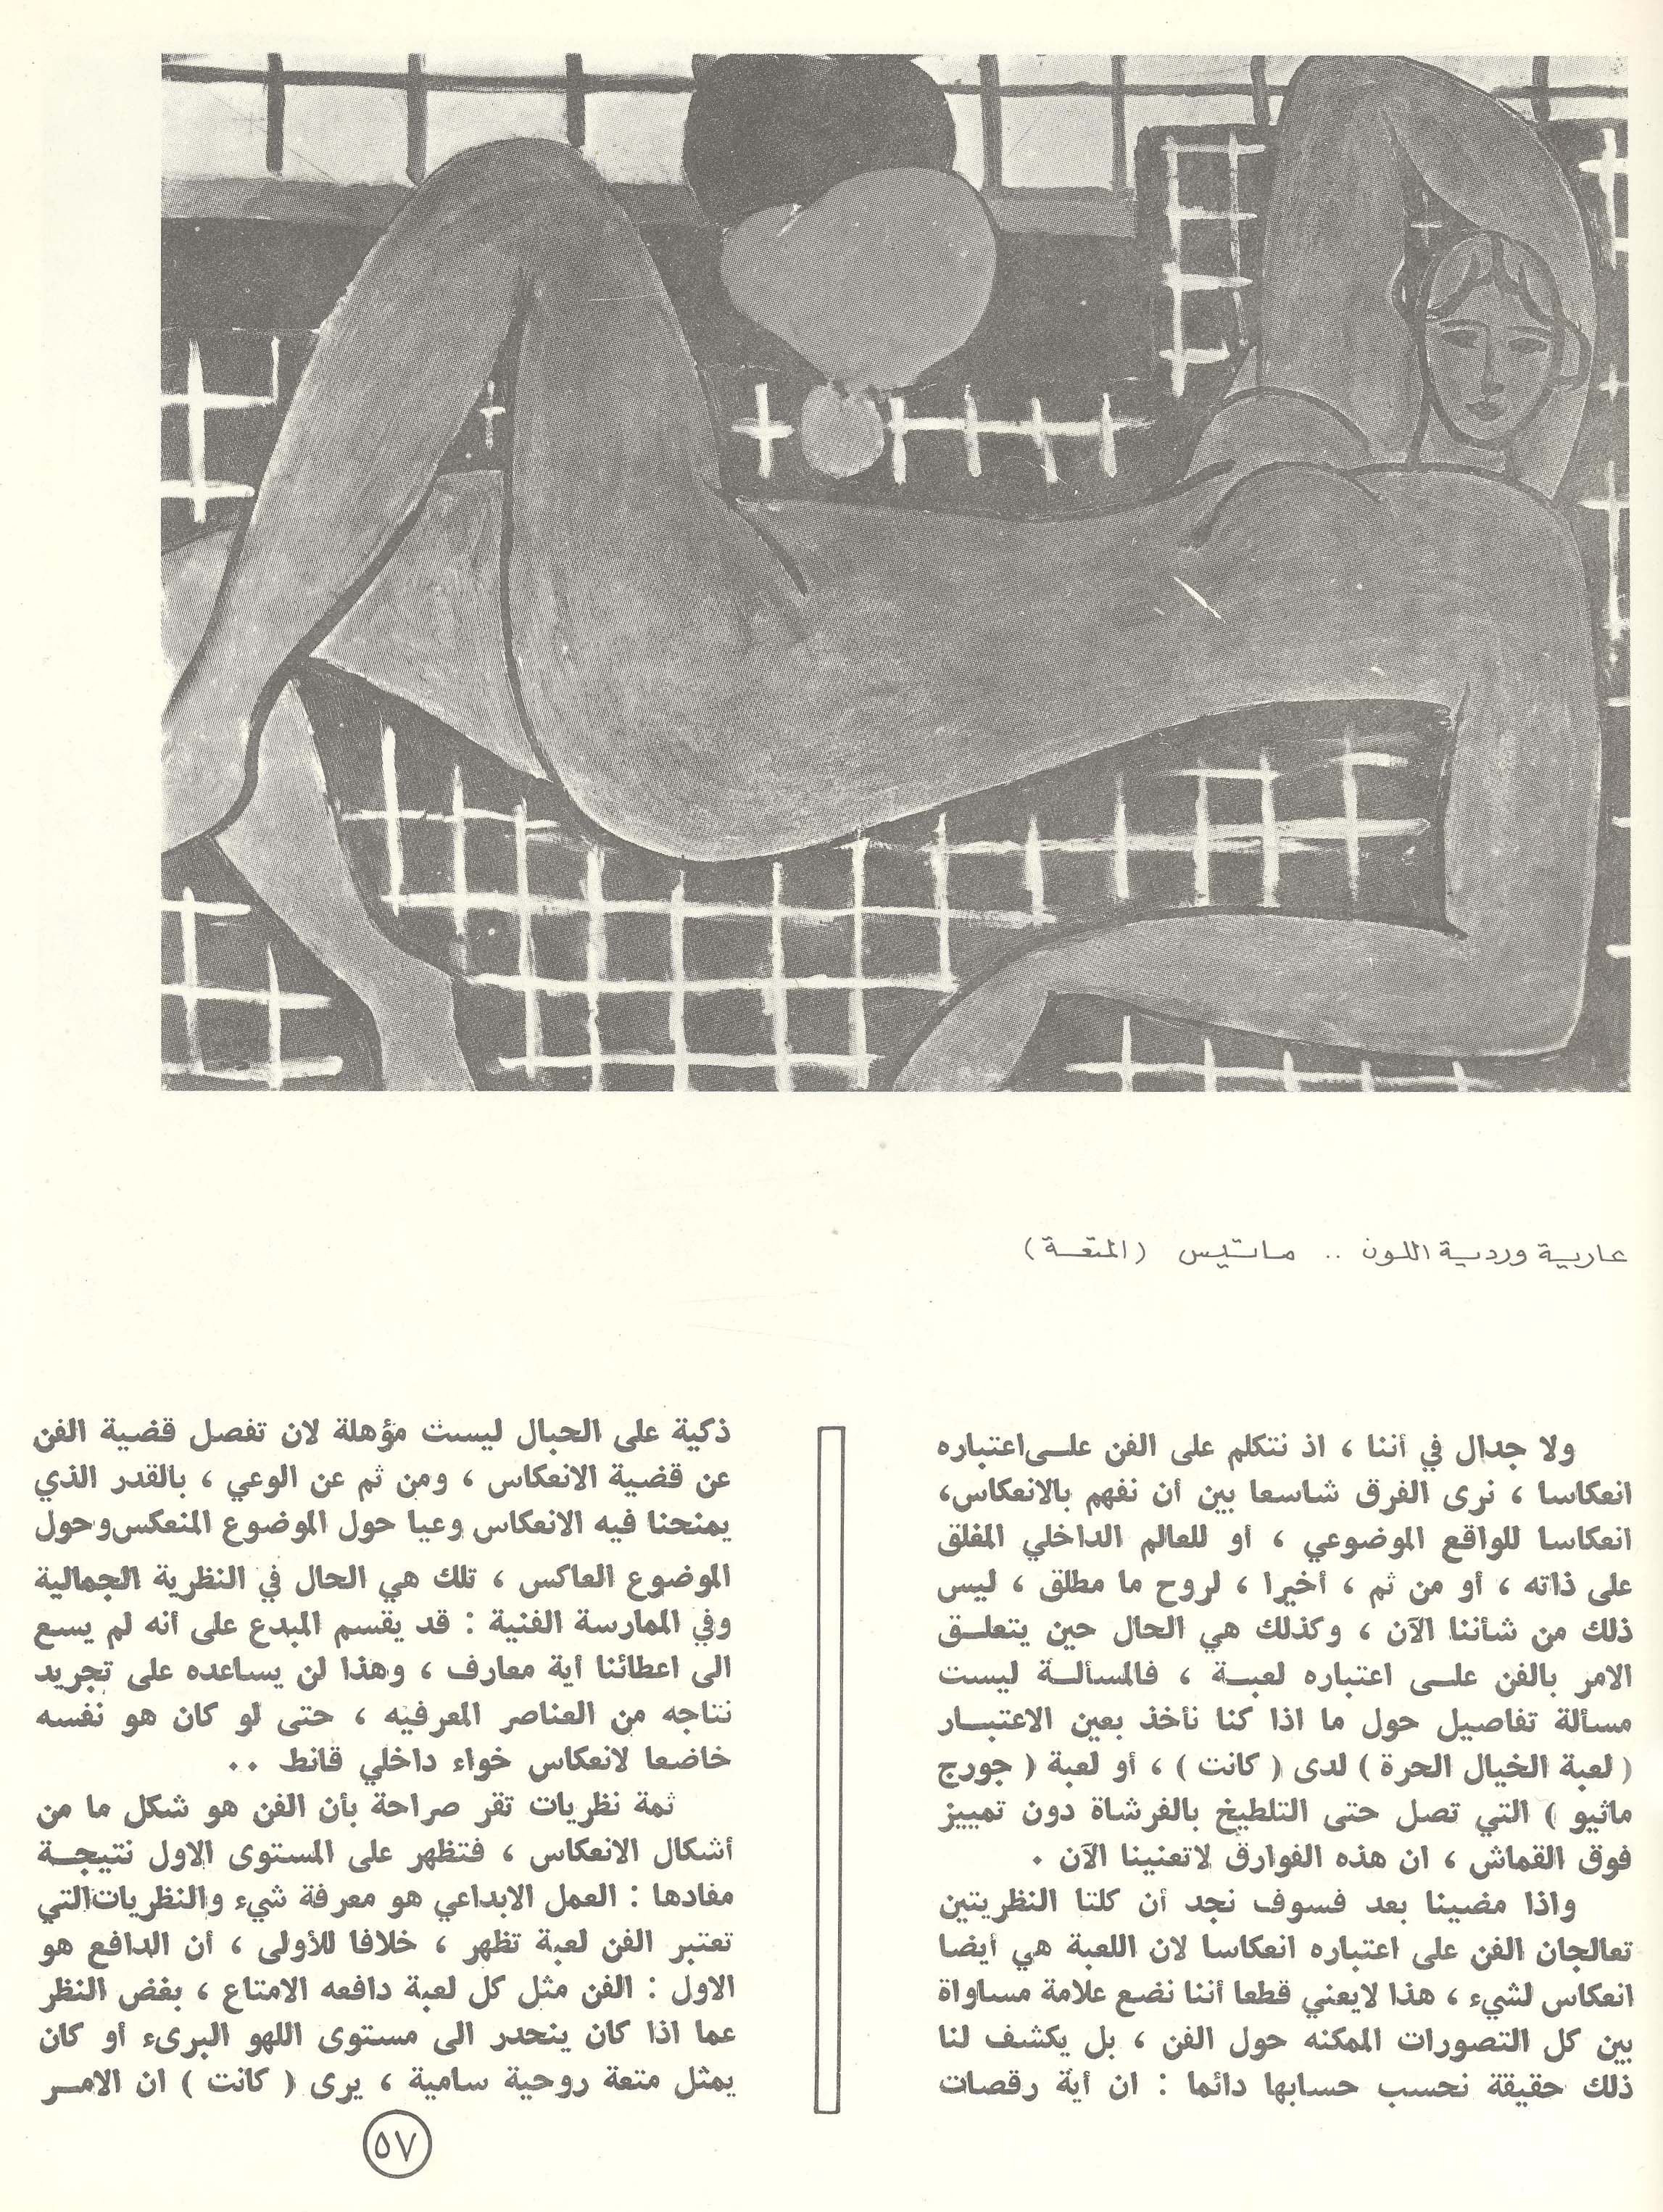 عارية وردية اللون .. ماتيس (المتعة)
ولا جدال في أننا ، اذ نتكلم على الفن علـى اعتباره
انعكاسا ، نرى الفرق شاسعا بين أن نفهم بالانعكاس،
انعكاسا للواقع الموضوعي ، أو للعالم الداخلي المغلق
على ذاته ، أو من ثم ، أخيرا ، لروح ما مطلق ، ليس
ذلك من شأننا الآن ، وكذلك هي الحال حين يتعلـق
الامر بالفن علـى اعتباره لعبـة ، فالمسألـة ليست
مسألة تفاصيل حول ما اذا كنا نأخذ بعين الاعتبـار
( لعبة الخيال الحرة ) لدى ( كانت ) ، أو لعبة ( جورج
ماثيو ) التي تصل حتى التلطيخ بالفرشاة دون تمييز
فوق القماش ، ان هذه الفوارق لاتعنينا الآن .
واذا مضينا بعد فسوف نجد أن كلتا النظريتين
تعالجان الفن على اعتباره انعكاسا لان اللعبة هي أيضا
انعكاس لشيء ، هذا لايعني قطعا أننا نضع علامة مساواة
بين كل التصورات الممكنه حول الفن ، بل يكشف لنا
ذلك حقيقة نحسب حسابها دائما : ان أية رقصات
ذكية على الحبال ليست مؤهلة لان تفصل قضية الفن
عن قضية الانعكاس ، ومن ثم عن الوعي ، بالقدر الذي
يمنحنا فيه الانعكاس وعيا حول الموضوع المنعكس وحول
الموضوع العاكس ، تلك هي الحال في النظرية الجمالية
وفي الممارسة الفنية : قد يقسم المبدع على أنه لم يسع
الى اعطائنا أية معارف ، وهذا لن يساعده على تجريد
نتاجه من العناصر المعرفيه ، حتى لو كان هو نفسه
خاضعا لانعكاس خواء داخلي قانط ..
ثمة نظريات تقر صراحة بأن الفن هو شكل ما من
أشكال الانعكاس ، فتظهر على المستوى الاول نتيجـة
مفادها : العمل الابداعي هو معرفة شيء والنظريات التي
تعتبر الفن لعبة تظهر ، خلافا للأولى ، أن الدافع هو
الاول : الفن مثل كل لعبة دافعه الامتاع ، بغض النظر
عما اذا كان ينحدر الى مستوى اللهو البرىء أو كان
يمثل متعة روحية سامية ، يرى ( كانت ) ان الامـر
٥٧